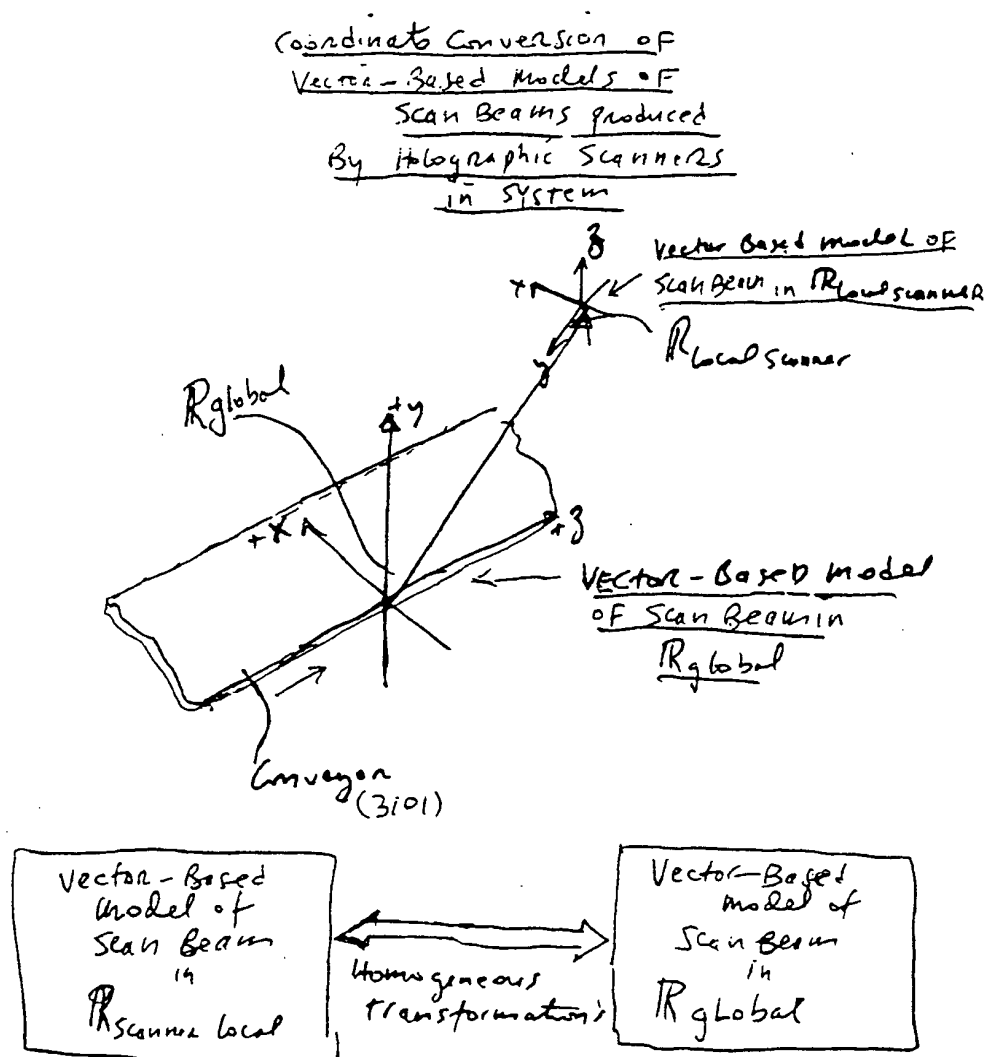 Coordinate Conversion of
Vector-Based Models of
Scan Beams produced
By Holographic Scanners
in System
z
Vector Based model of
Scan Beam in ℝ Local scanner
+x
ℝ Local Scanner
y
ℝ global
+y
+x
+z
VECTOR-Based model
of Scan Beam in
ℝ global
Conveyor
(3101)
Vector-Based
model of
Scan Beam
in
ℝ scanner local
Homogeneous
transformations
Vector-Based
model of
Scan Beam
in
ℝ global